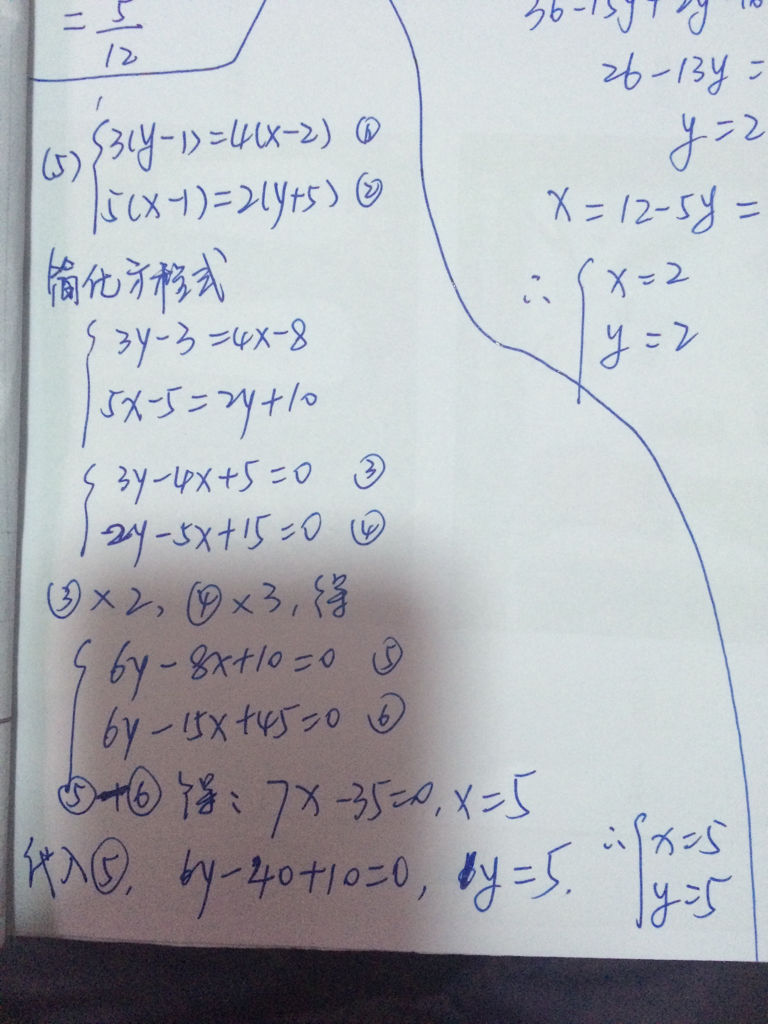 = 5/12
(5) { 3(y-1)=4(x-2) ①
5(x-1)=2(y+5) ②
简化方程式
{ 3y-3=4x-8
5x-5=2y+10
{ 3y-4x+5=0 ③
2y-5x+15=0 ④
③×2, ④×3, 得
{ 6y-8x+10=0 ⑤
6y-15x+45=0 ⑥
⑤-⑥ 得: 7x-35=0, x=5
代入⑤, 6y-40+10=0, y=5. ∴ { x=5
y=5
36-15y+2y
26-13y=
y=2
x=12-5y=
∴ { x=2
y=2